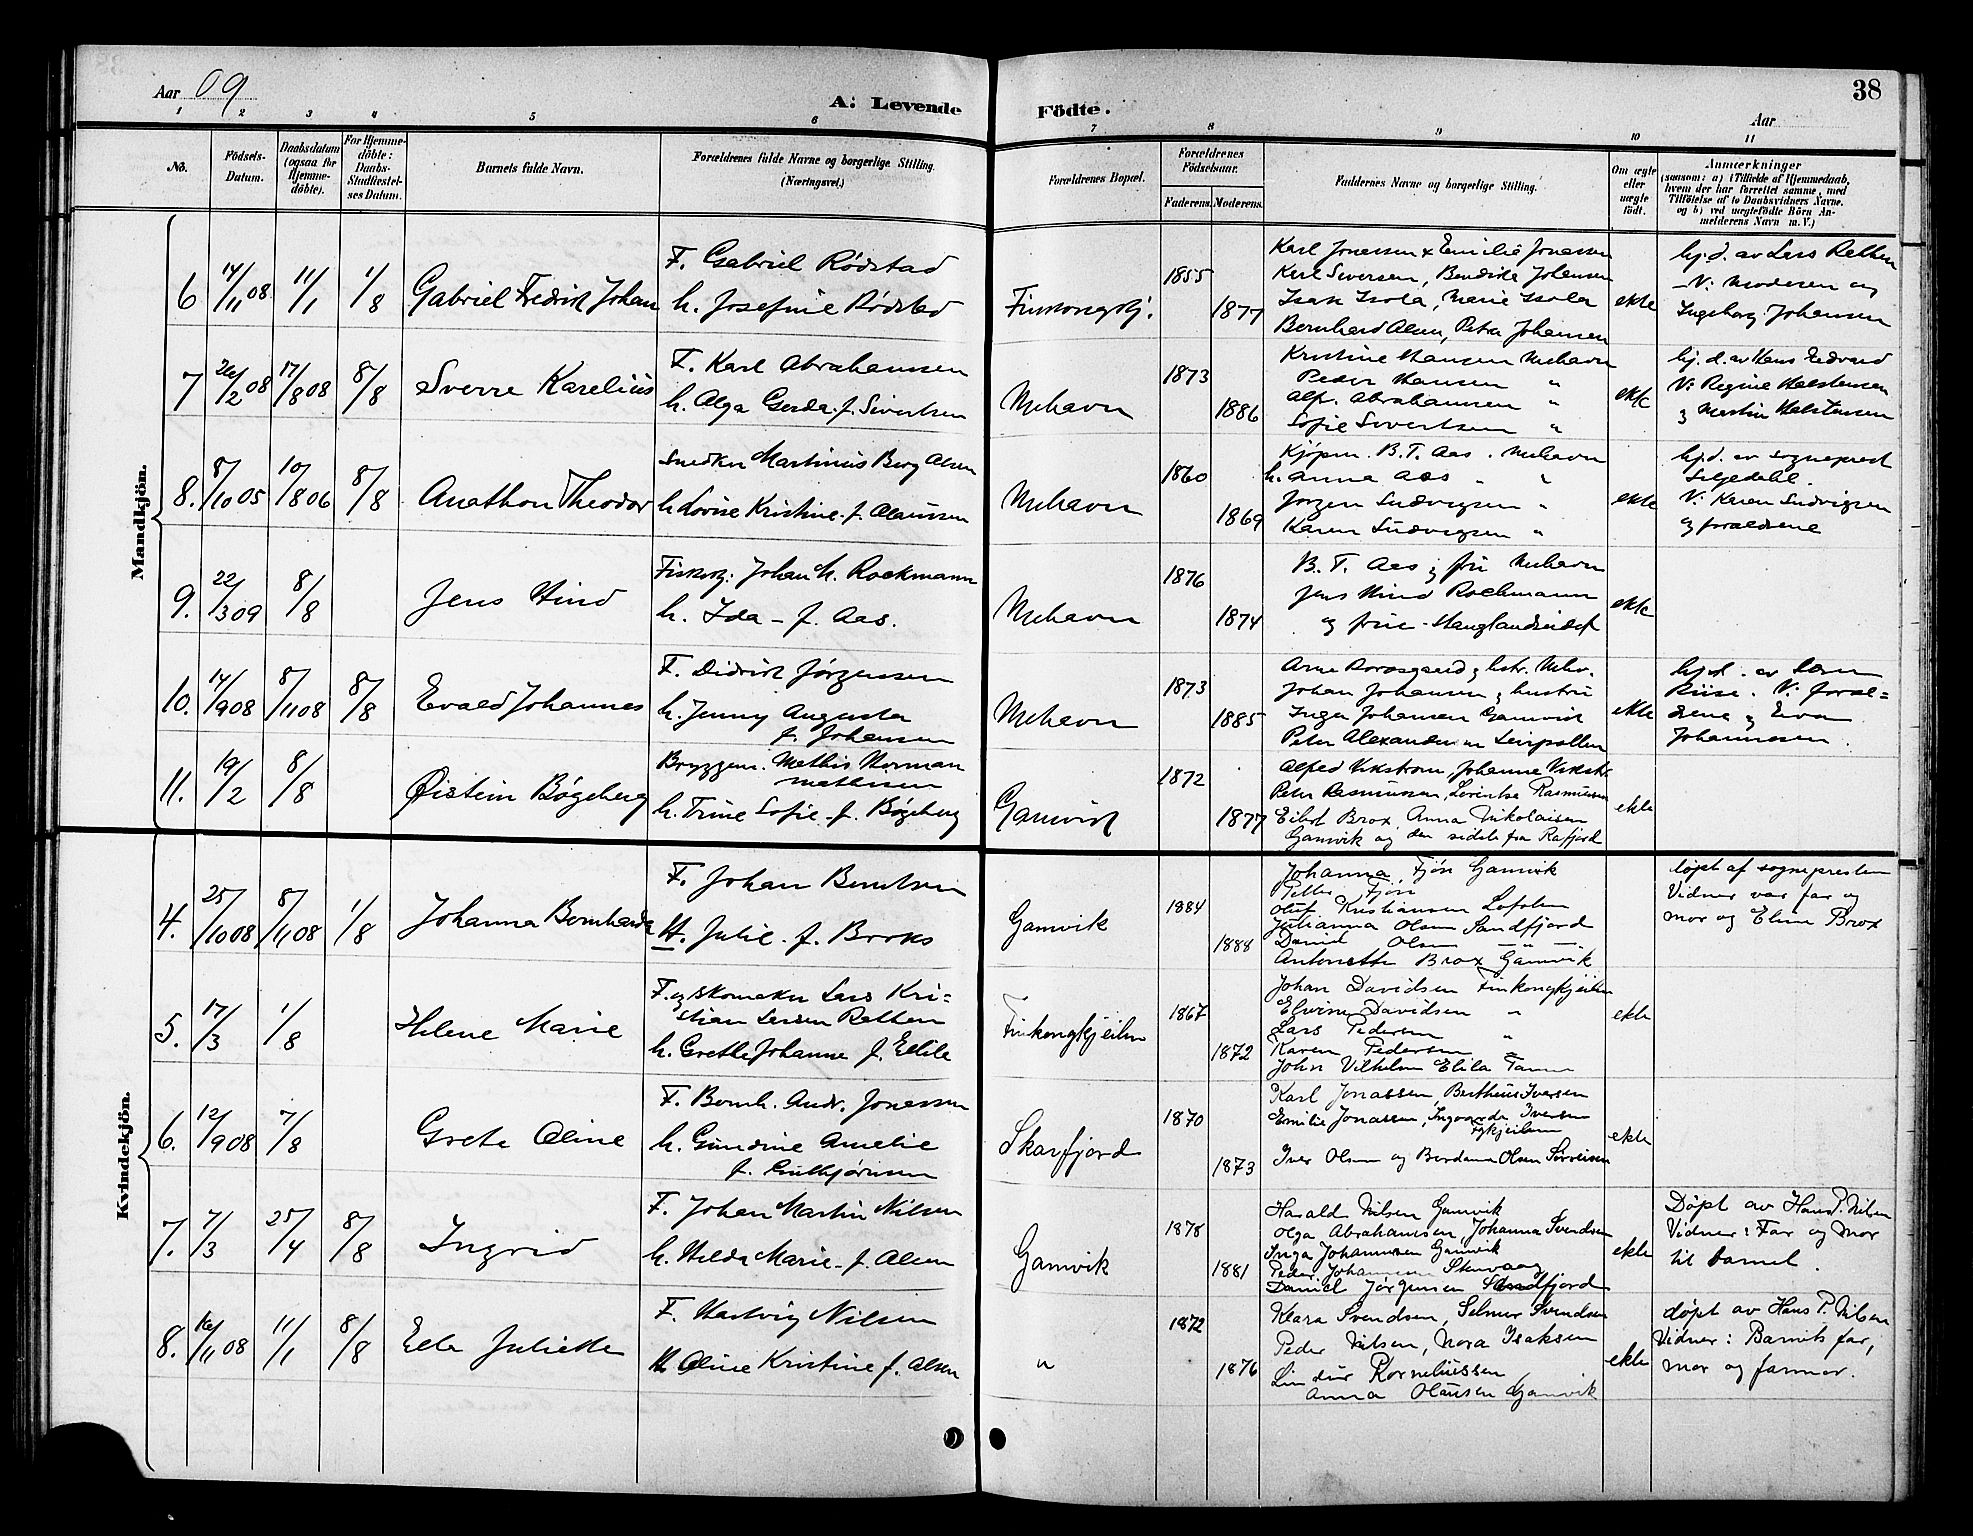 Aar 09
A. Levende Födte.
38
Aar
1 2 3 4 5 6 7 8 9 10 11
No.
Födsels-Datum.
Daabsdatum (ogsaa for Hjemmedöbte).
For Hjemmedöbte: Daabs-Stadfæstelses Datum.
Barnets fulde Navn.
Forældrenes fulde Navne og borgerlige Stilling. (Næringsvei.)
Forældrenes Bopæl.
Forældrenes Födselsaar.
Faderens. Moderens.
Faddernes Navne og borgerlige Stilling.
Om ægte eller uægte födt.
Anmærkninger
(saasom: a) i Tilfælde af Hjemmedaab, hvem der har forrettet samme, med Tilföielse af to Daabsvidners Navne. og b) ved uægtefödte Börn Anmelderens Navn m. V.)
Mandkjön.
6 14/11 08 11/1 1/8 Gabriel Fredrik Johan
F. Gabriel Rødstad
h. Josefine Rødstad
Finkongkj. 1855 1877
Karl Jonassen & Emilie Jonassen
Karl Iversen, Bendikte Johansen
Isak Isola, Marie Isola
Bernhard Alsen, Petra Johansen
ekte
hj.d. av Lars Retten
V: Moderen og
Ingeborg Johansen
7 26/2 08 17/8 08 8/8 Sverre Karelius
F. Karl Abrahamsen
h. Olga Gerda f. Sivertsen
Mehavn 1873 1886
Kristine Hansen Mehavn
Peder Hansen "
Alf. Abrahamsen "
Sofie Sivertsen "
ekte
hj.d. av Hans Edvard
V: Regine Halstensen
og Martin Halstensen
8. 8/10 05 10/8 06 8/8 Anathon Theodor
Snedker Martinius Berg Olsen
h. Lovise Kristine f. Olaussen
Mehavn 1860 1869
Kjøpm. B. T. Aas. Mehavn
h. Anna Aas "
Jørgen Ludvigsen "
Karen Ludvigsen "
ekte
hj.d. av sogneprest
Seljedahl.
V: Karen Ludvigsen
og forældrene
9. 22/3 09 8/8 Jens Hind
Fiskerg. Johan H. Rockmann
h. Ida - f. Aas.
Mehavn 1876 1874
B. T. Aas og fru Mehavn
Jens Hind Rochmann
og frue
ekte
10. 14/9 08 8/11 08 8/8 Evald Johannes
F. Didrik Jørgensen
h. Jenny Augusta
f. Johansen
Mehavn 1873 1885
Johan Johansen og hustru
Inga Johansen Gamvik
Peter Alexandersen Leirpollen
ekte
hj.d. av
V: foræl=
drene og
Johannesen.
11. 19/2 8/8 Øistein Bøgeberg
Bryggem. Mathis Norman
Mathisen
h. Trine Sofie f. Bøgeberg
Gamvik 1872 1877
Alfred Vikstrøm, Johanne Vikstr.
Peter Rasmussen, Lorentse Rasmussen
Eilert Brox, Anna Nikolaisen
Gamvik og den sidste fra Rafjord
ekte
Kvindekjön.
4. 25/10 08 8/11 08 1/8 Johanna Bernharda
F. Johan Berntsen
H. Julie f. Broks
Gamvik 1884 1888
Johanna Fjön Gamvik
Petter Fjön
Oluf Kristiansen Lofoten
Julianna Olsen Sandfjord
Daniel Olsen — " —
Antonette Brox Gamvik
døpt af sognepresten
Vidner var far og
mor og Eline Brox
5. 17/3 1/8 Helene Marie
F. og skomaker Lars Kri=
stian Larsen Retten
h. Grethe Johanne f. Elila
Finkongkjeilen 1867 1872
Johan Davidsen Finkongkjeilen
Elvine Davidsen "
Lars Pedersen "
Karen Pedersen
John Vilhelm Elila Tanen
ekte
6. 12/9 08 7/8 Grete Oline
F. Bernh. Andr. Jonassen
h. Gundine Amelie
f. Guttjørnsen
Skarfjord 1870 1873
Karl Jonassen, Bertheus Iversen
Emilie Jonassen, Ingvarda Iversen
Fgkjeilen
Iver Olsen og Berdana Olsen Sørveisen
ekte
7. 7/3 25/4 8/8 Ingrid
F. Johan Martin Nilsen
h. Hilda Marie f. Olsen
Gamvik 1878 1881
Harald Nilsen Gamvik
Olga Abrahamsen, Johanna Svendsen
Inga Johannesen Gamvik
Peder Johannesen
Daniel Jørgensen Sandfjord
ekte
Døpt av Hans P. Nilsen
Vidner: Far og mor
til barnet.
8. 16/11 08 11/1 8/8 Ella Juliette
F. Hartvig Nilsen
H Oline Kristine f. Olsen
" 1872 1876
Klara Svendsen, Selmer Svendsen
Peder Nilsen, Nora Isaksen
Lindur Kornelliussen
Anna Olausen Gamvik
ekte
døpt av Hans P. Nilsen
Vidner: Barnets far,
mor og farmor.